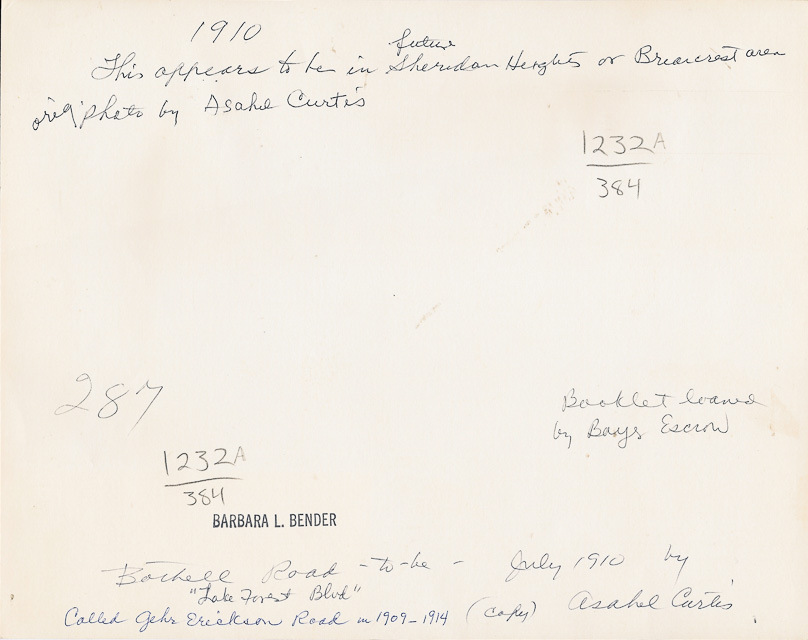 1910
future
This appears to be in Sheridan Heights or Briarcrest area
orig photo by Asahel Curtis
1232A
384
287
Booklet loaned
by Bangs Escrow
1232A
384
BARBARA L. BENDER
Bothell Road -to-be - July 1910 by
"Lake Forest Blvd"
Called Gehr Erickson Road in 1909-1914 (copy) Asahel Curtis